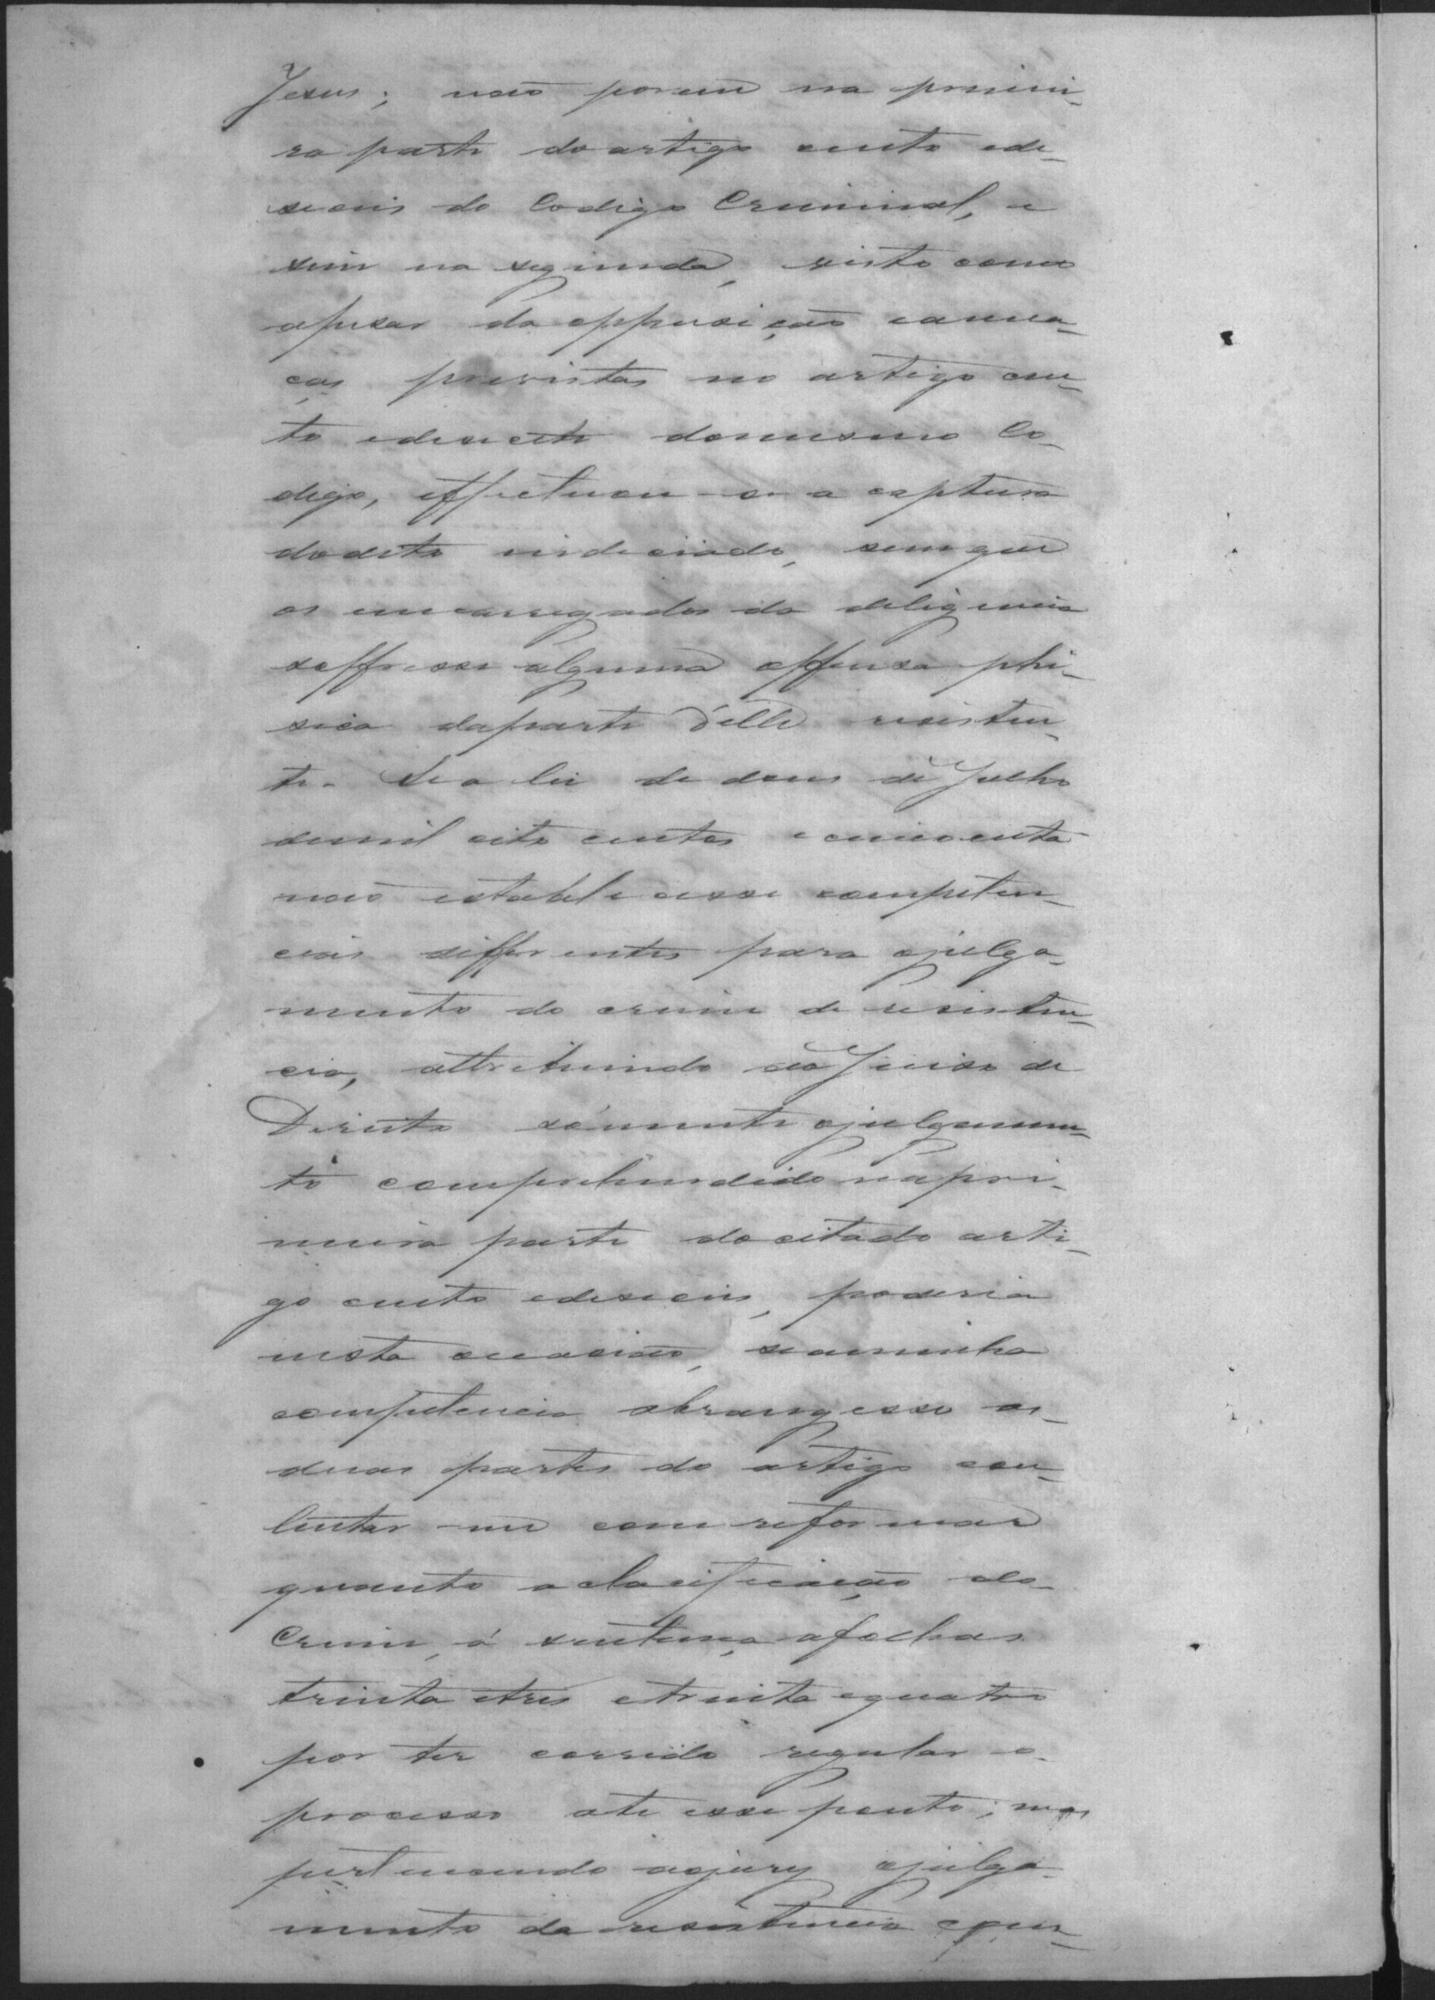 Jesus; não porem na primei-
ra parte do artigo cento e de-
seceis do Codigo Criminal, e
sim na segunda, visto como
apesar da opposição e amea-
ças previstas no artigo cen-
to e deseceis do mesmo Co-
digo, effectuou-se a captura
do dito indiciado, sem que
os encarregados da deligencia
soffresse alguma offensa phi-
sica da parte d'elle resisten-
te. Se a lei de dous de Julho
de mil oito centos e cincoenta
não estabelecesse competen-
cias differentes para o julga-
mento do crime de resisten-
cia, attribuindo ao Juiso de
Direito sómente o julgamen-
to comprehendido na pri-
meira parte do citado arti-
go cento e deseceis, poderia
nesta occasião, se a minha
competencia abrangesse as
duas partes do artigo con-
tentar-me com reformar
quanto a classificação do
Crime, á sentença a folhas
trinta e tres e trinta e quatro
por ter corrido regular o
processo ate esse ponto; mas
pertencendo ao jury o julga-
mento da resistencia